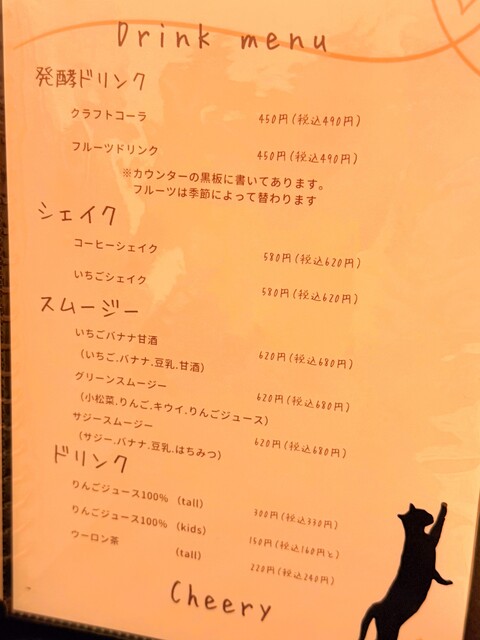 Drink menu
発酵ドリンク
クラフトコーラ 450円(税込490円)
フルーツドリンク 450円(税込490円)
※カウンターの黒板に書いてあります。
フルーツは季節によって替わります
シェイク
コーヒーシェイク 580円(税込620円)
いちごシェイク 580円(税込620円)
スムージー
いちごバナナ甘酒 620円(税込680円)
（いちご.バナナ.豆乳.甘酒）
グリーンスムージー 620円(税込680円)
（小松菜.りんご.キウイ.りんごジュース）
サジースムージー 620円(税込680円)
（サジー.バナナ.豆乳.はちみつ）
ドリンク
りんごジュース100% （tall） 300円(税込330円)
りんごジュース100% （kids） 150円(税込160円と)
ウーロン茶 （tall） 220円(税込240円)
Cheery